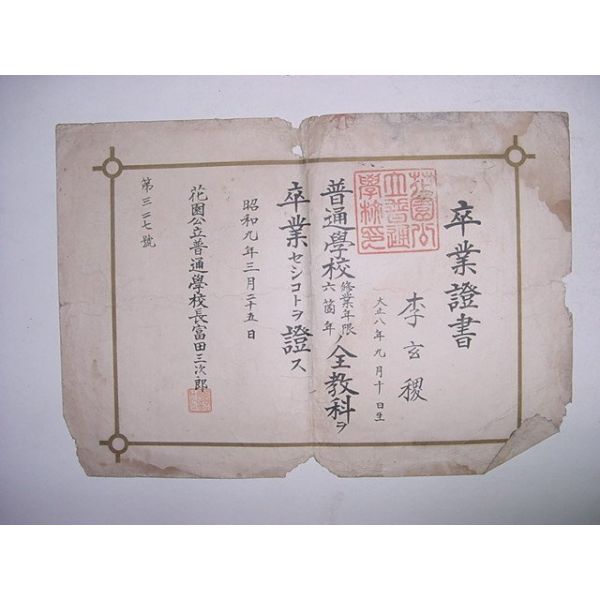 卒業證書
李玄稷
大正八年九月十日生
普通學校修業年限六箇年ノ全教科ヲ
卒業セシコトヲ證ス
昭和九年三月二十五日
花園公立普通學校長富田三次郎
第三二七號
花園公立普通學校印